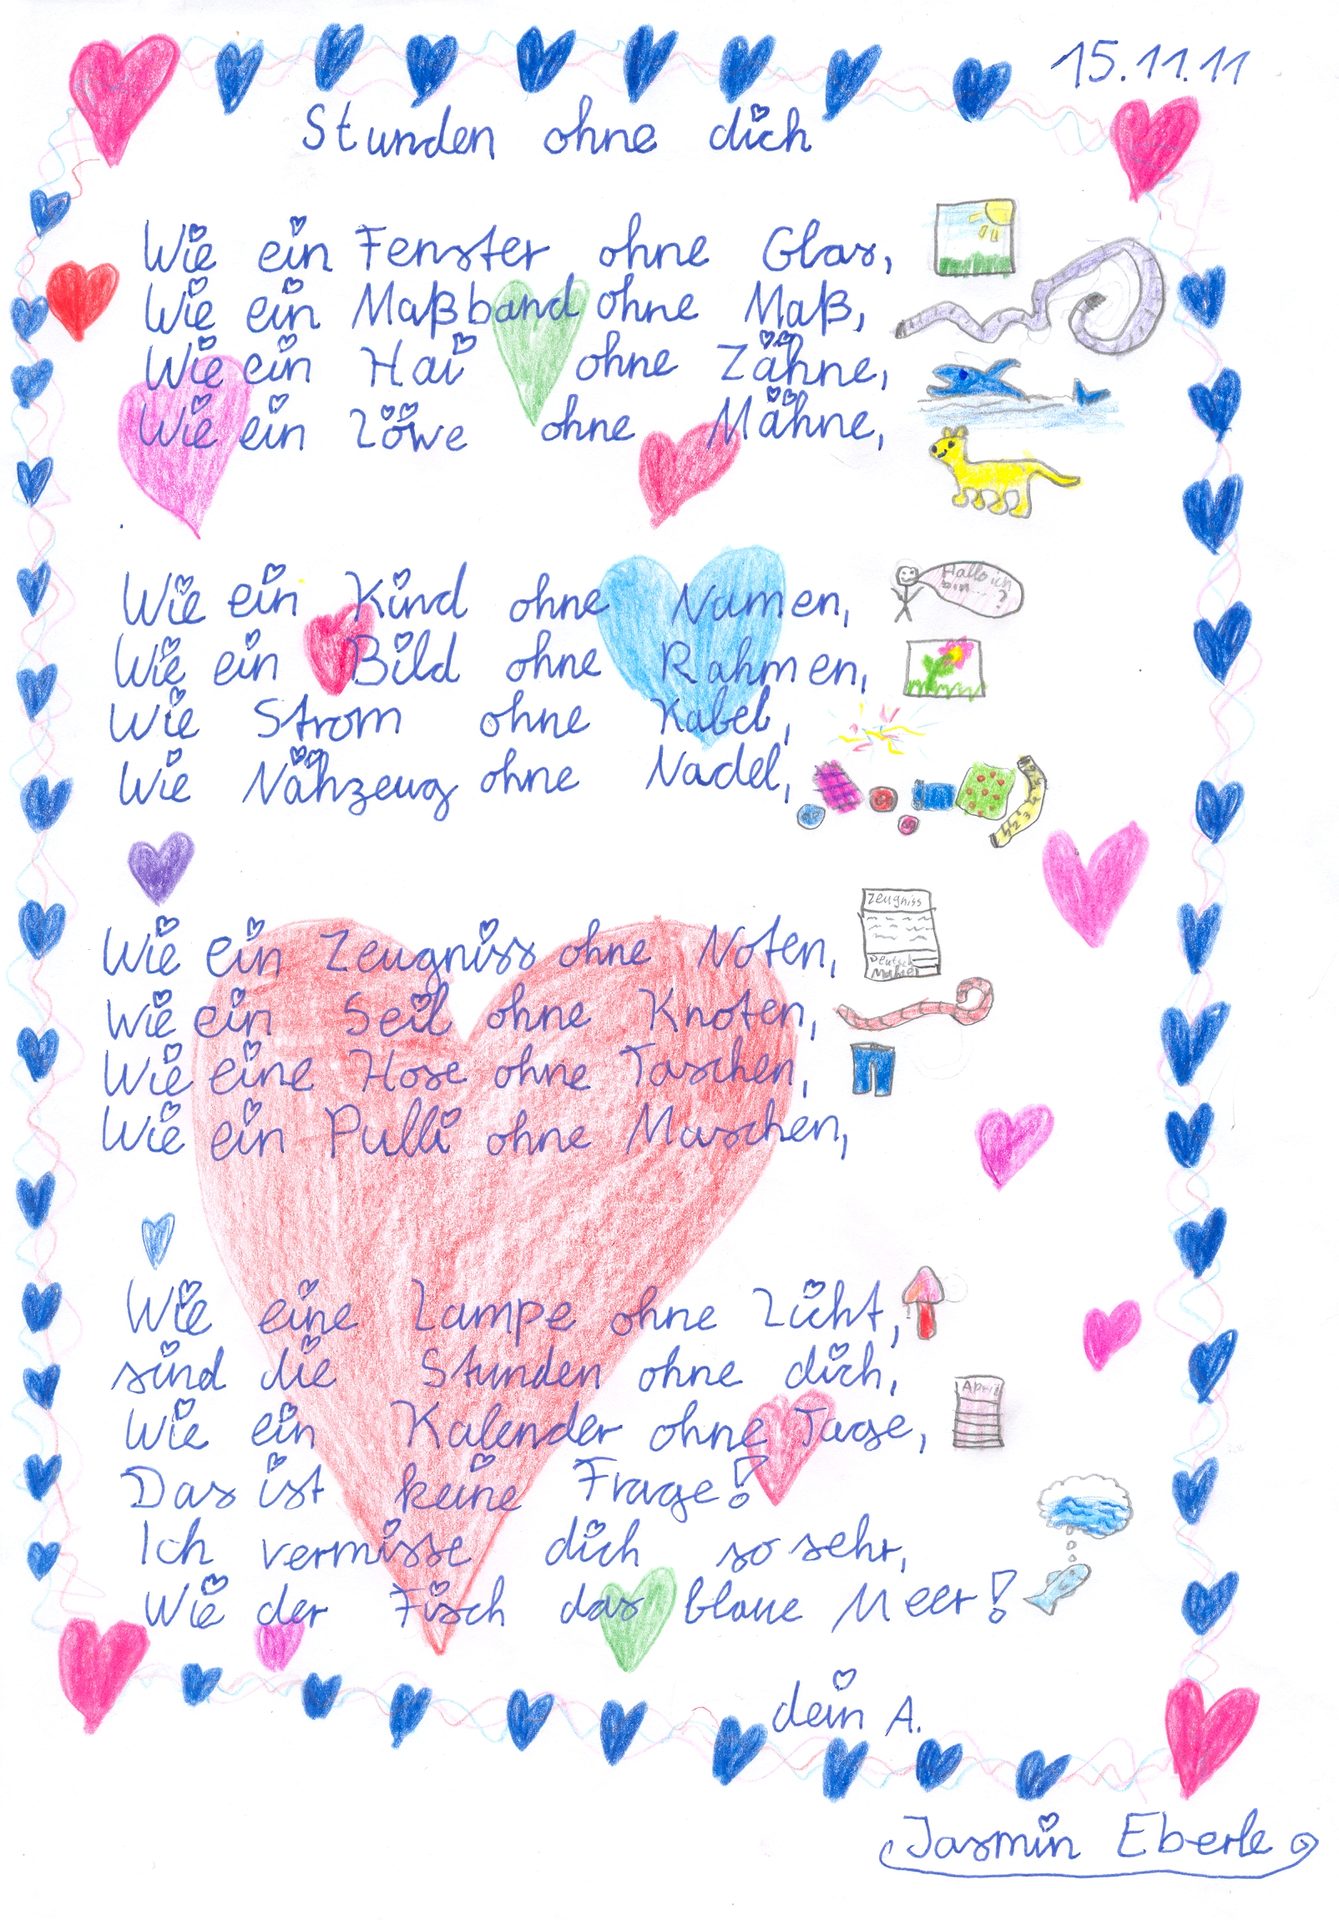 15.11.11
Stunden ohne dich
Wie ein Fenster ohne Glas,
Wie ein Maßband ohne Maß,
Wie ein Hai ohne Zähne,
Wie ein Löwe ohne Mähne,
Wie ein Kind ohne Namen,
Hallo ich
bin....?
Wie ein Bild ohne Rahmen,
Wie Strom ohne Kabel,
Wie Nähzeug ohne Nadel,
Wie ein Zeugniss ohne Noten,
Zeugniss
Deutsch
Mathe
Wie ein Seil ohne Knoten,
Wie eine Hose ohne Taschen,
Wie ein Pulli ohne Maschen,
Wie eine Lampe ohne Licht,
sind die Stunden ohne dich,
Wie ein Kalender ohne Tage,
April
Das ist keine Frage!
Ich vermisse dich so sehr,
Wie der Fisch das blaue Meer!
dein A.
Jasmin Eberle